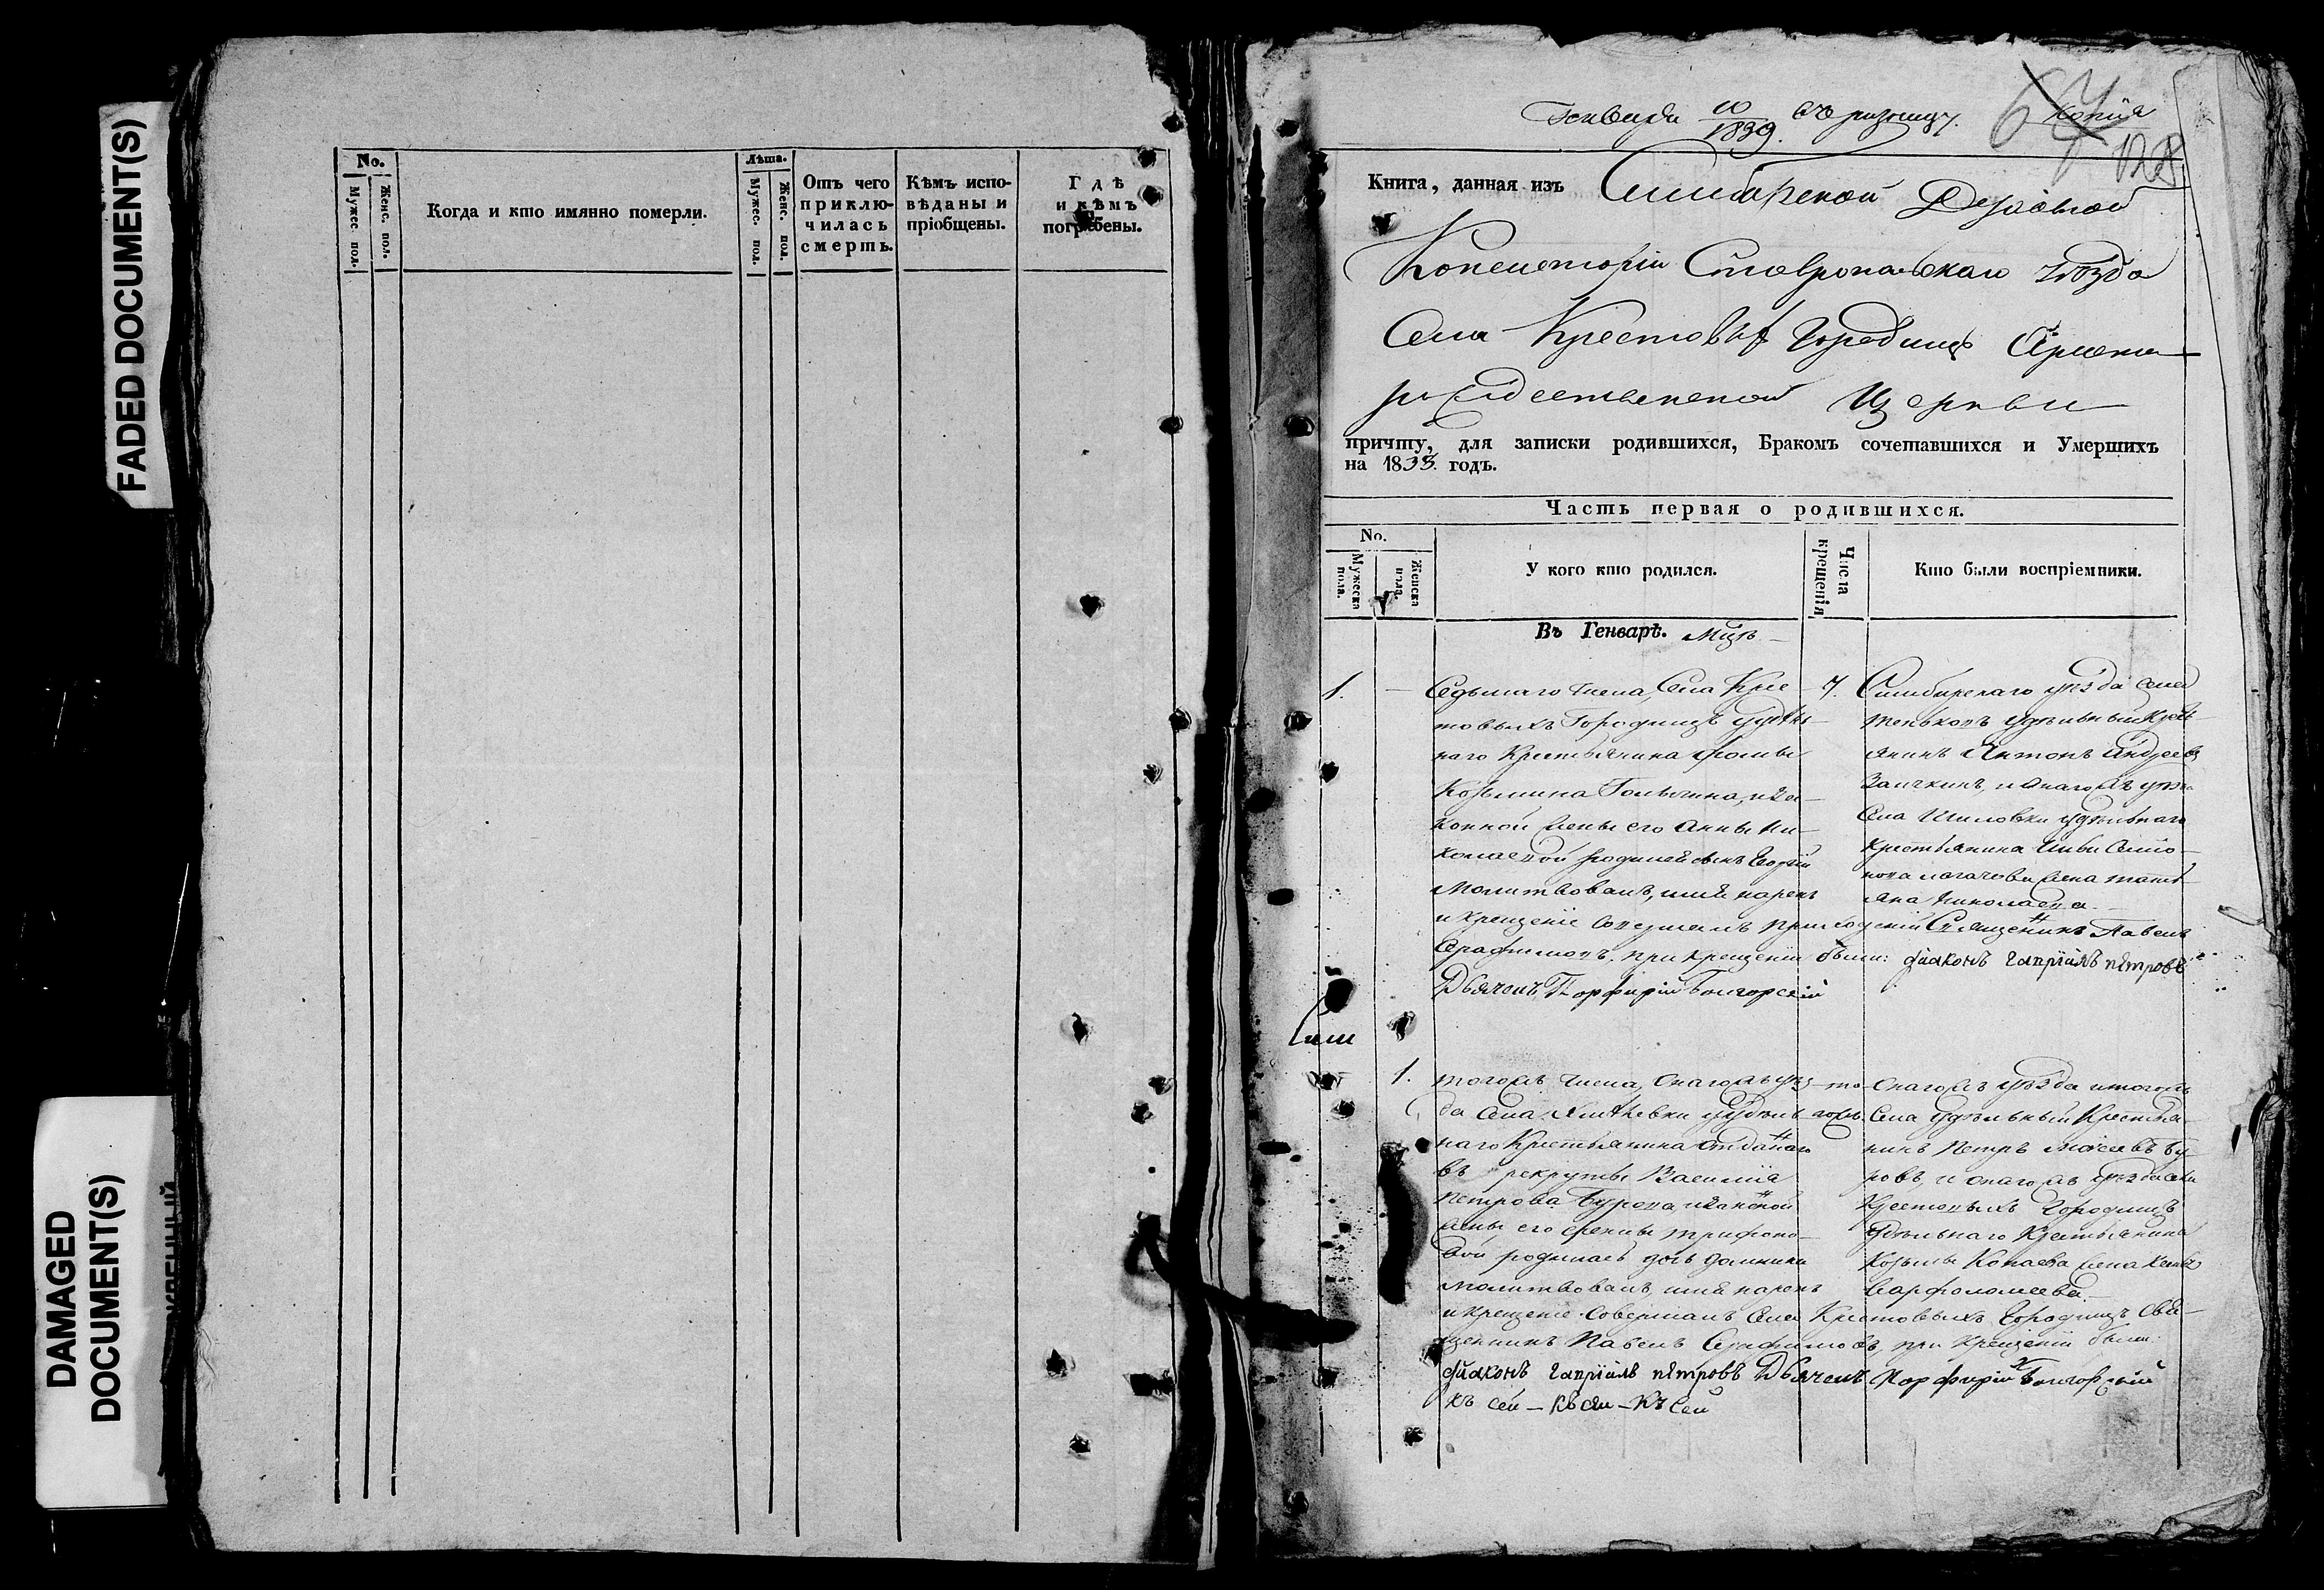 FADED DOCUMENT(S)
DAMAGED
DOCUMENT(S)
No.
Мужес. пол.
Женс. пол.
Когда и кто имянно померли.
Лѣта.
Мужес. пол.
Женс. пол.
Отъ чего
приклю-
чилась
смерть.
Кѣмъ испо-
вѣданы и
пріобщены.
Гдѣ
и кѣмъ
погребены.
Генваря 10 1839. въ ризницу.
Копiя
64
128
Книга, данная изъ Симбирской Духовной
Консисторіи Ставропольскаго уѣзда
Села Крестовыхъ Городищъ Христо-
рождественской Церкви
причту, для записки родившихся, Бракомъ сочетавшихся и Умершихъ
на 1838. годъ.
Часть первая о родившихся.
No.
Мужеска пола.
Женска пола.
У кого кто родился.
Числа крещенія
Кто были воспріемники.
Въ Генварѣ. Мцѣ
1.
Седьмаго числа, Села Кре-
стовыхъ Городищъ Удѣль-
наго Крестьянина Фомы
Козьмина и за-
конной жены его Анны Ни-
колаевой родился сынъ
Молитвовалъ, имя нарекъ
и крещеніе совершалъ приходскій Священникъ Павелъ
Серафимовъ, при крещеніи были: діаконъ гапріилъ пѣтровъ
Дьячекъ Порфирій Болгорскій
7.
Симбирскаго уѣзда села
удѣльный Кресть-
янинъ Антонъ Андреевъ
Заичкинъ, и онагожъ уѣзда
Села Шиловки удѣльнаго
Крестьянина Семіо-
нова жена Татья-
яна Николаева.
1.
тогожъ числа, Онагожъ уѣз-
да Села удѣль-
наго Крестьянина отданнаго
въ рекруты Василія
Петрова Бурова, и законной
жены его Трифоно-
вой родилась дочь Домника
Молитвовалъ, имя нарекъ
и крещеніе совершалъ Села Крестовыхъ Городищъ Свя-
щенникъ Павелъ Серафимовъ, при крещеніи были:
діаконъ гапріилъ пѣтровъ Дьячекъ Порфирій Болгорскій
Къ сей – Къ сей – Къ сей
то-
гожъ
Онагожъ уѣзда и тогожъ
Села Удѣльный Крестья-
нинъ Петръ Бу-
ровъ, и онагожъ уѣзда села
Крестовыхъ Городищъ
Удѣльнаго Крестьянина
Козьмы жена
Варфоломеева.